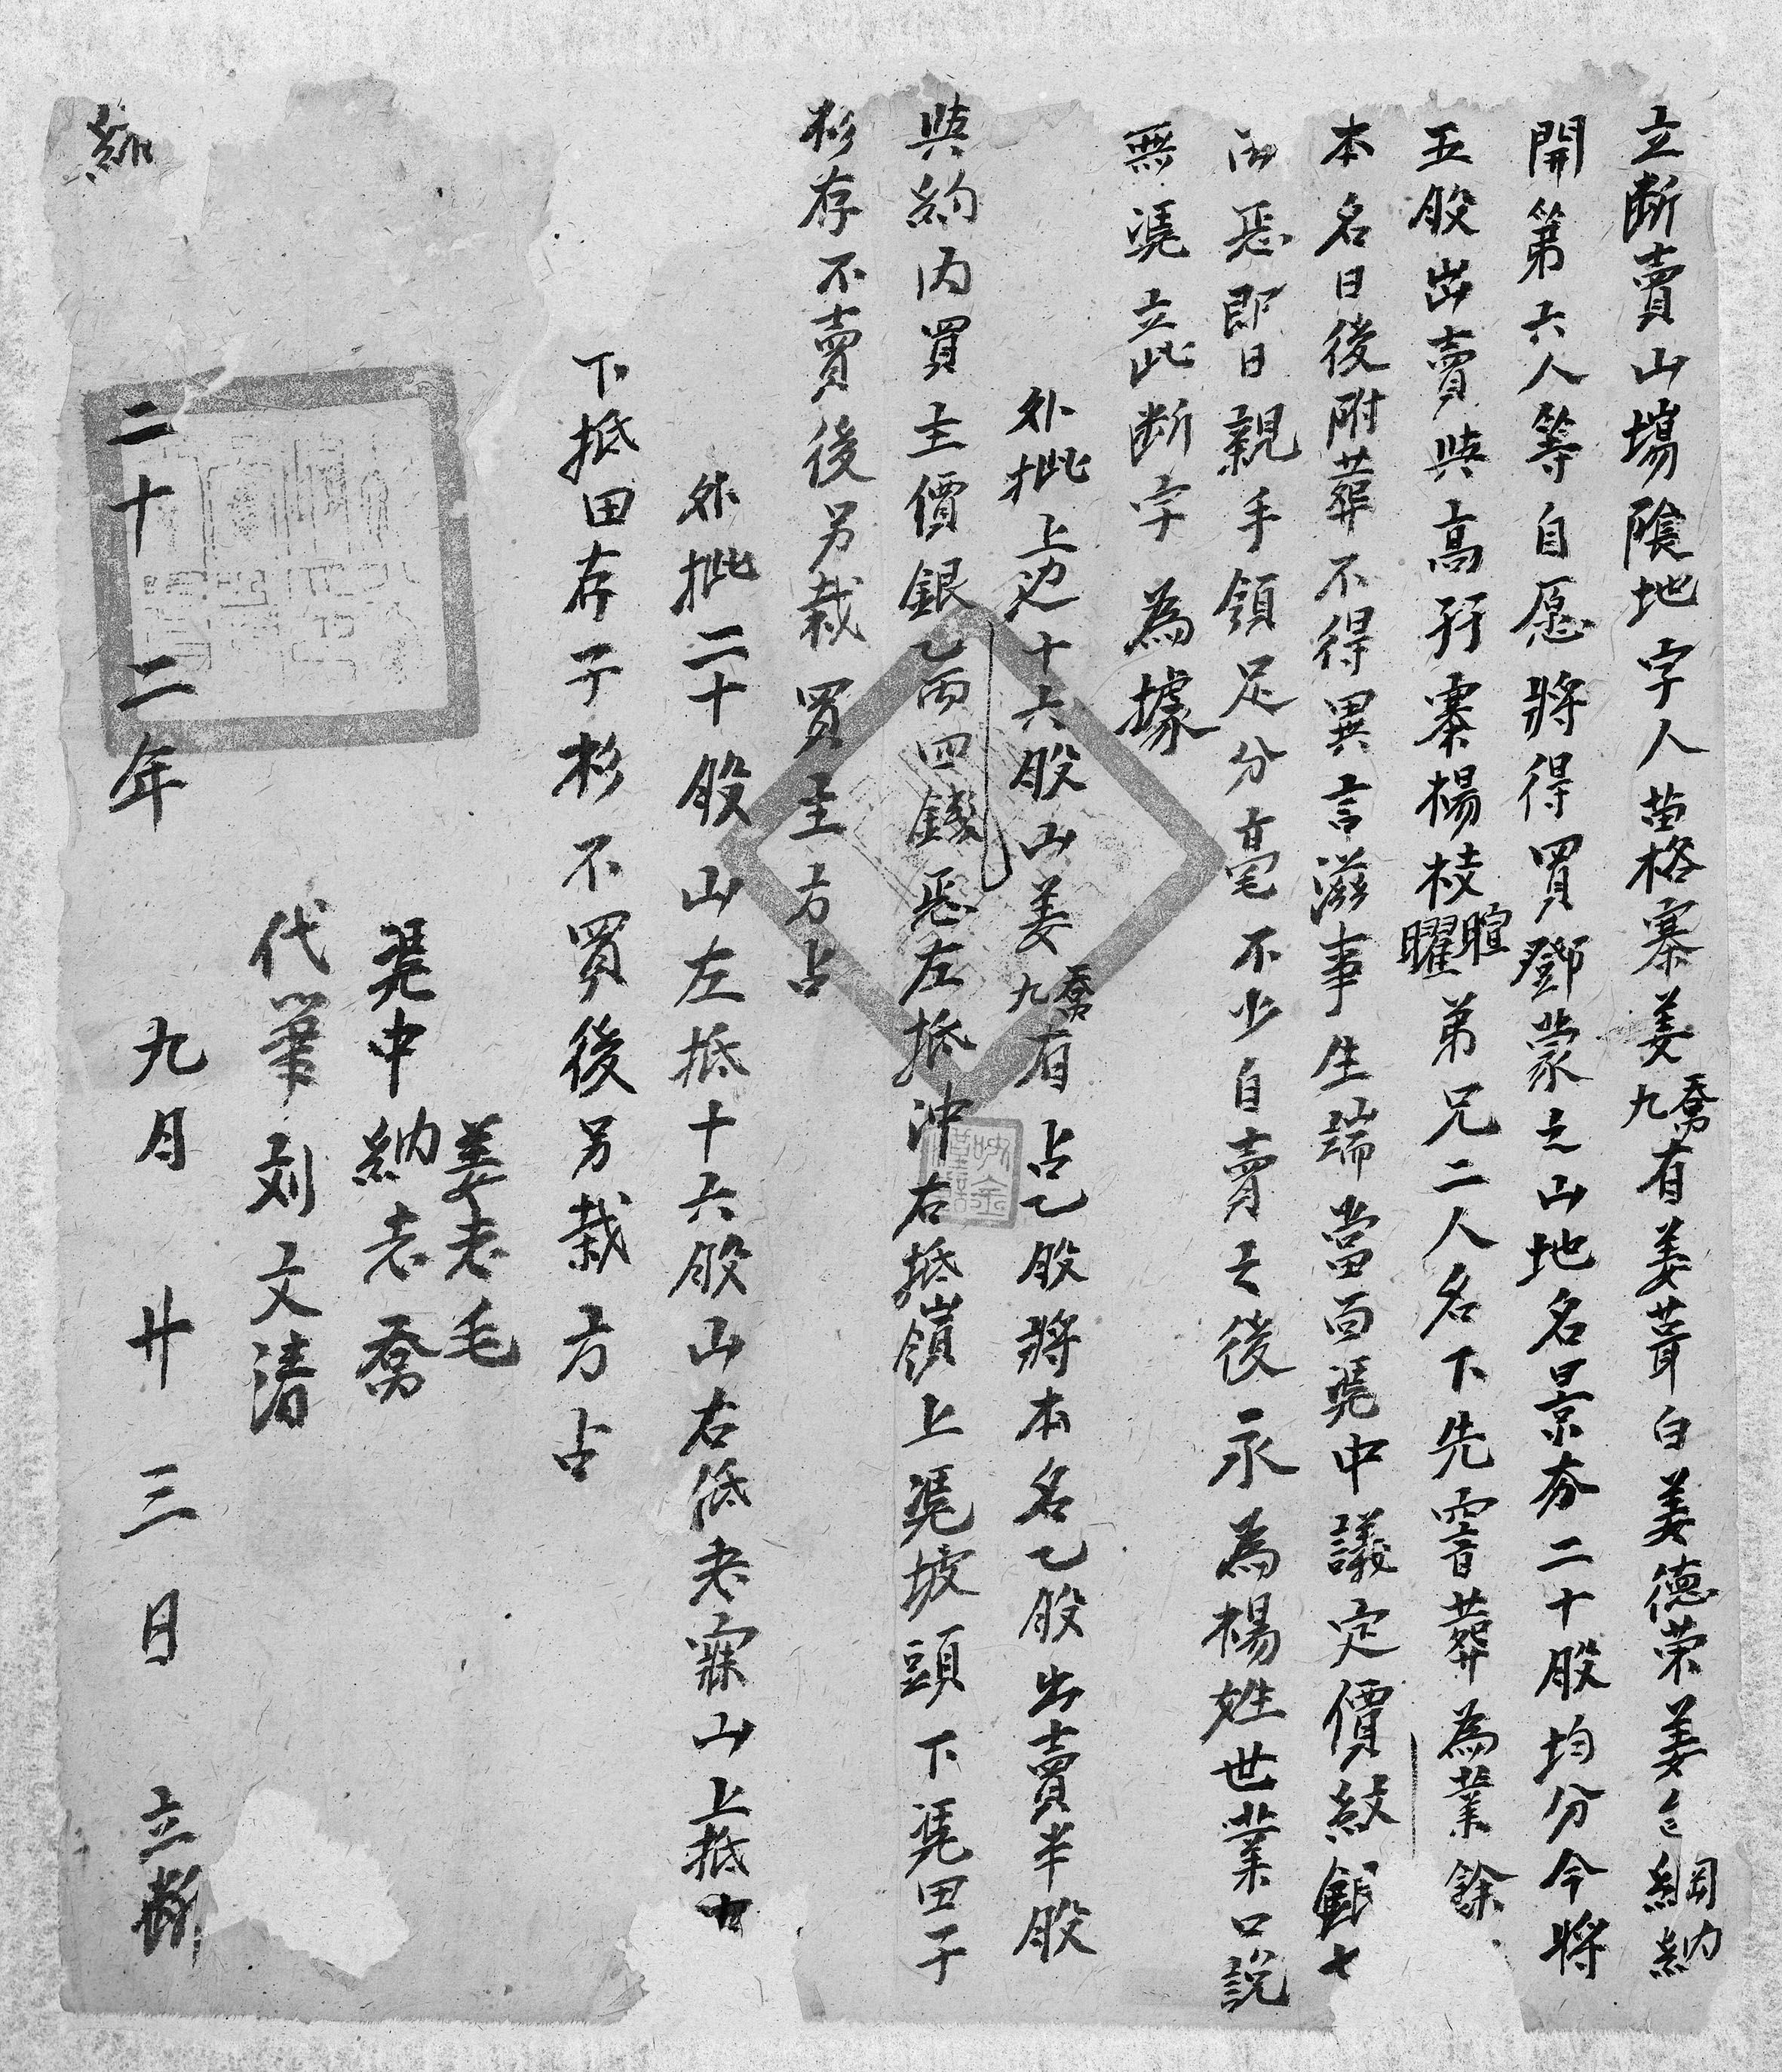 立断賣山塲陰地字人苗格寨姜喬九有姜茸白姜德荣姜仝綱納
開第六人等自愿將得買鄧蒙之山地名景夯二十股均分今將
五股出賣與高孖寨楊枝暄曜弟兄二人名下先窨葬為業餘
本名日後附葬不得異言滋事生端當面凴中議定價紋銀七
両恁即日親手領足分毫不少自賣之後永為楊姓世業口說
無凴立此断字為據
外批上边十六股山姜喬九有占乙股將本名乙股出賣半股
與約内買主價銀乙両四錢恁左抵冲右抵嶺上凴坡頭下凴田子
杉存不賣後另栽買主方占
外批二十股山左抵十六股山右低老寐山上抵
下抵田存子杉不買後另栽方占
姜老毛
凴中納老喬
代筆刘文清
二十二年九月廿三日立断